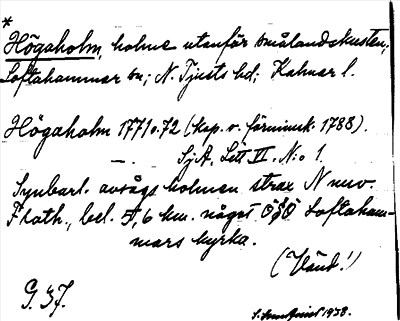 *
Högaholm, holme utanför smålandskusten;
Loftahammar sn; N. Tjusts hd; Kalmar l.
Högaholm 1771 o. 72 (kop. o. förminsk. 1788).
—. SjA, Litt VI. N:o 1.
Synbarl. avsågs holmen strax N nuv.
Flath., bel. 5,6 km. något ÖSÖ Loftaham-
mars kyrka.
(Vänd!)
G. 37.
1938.